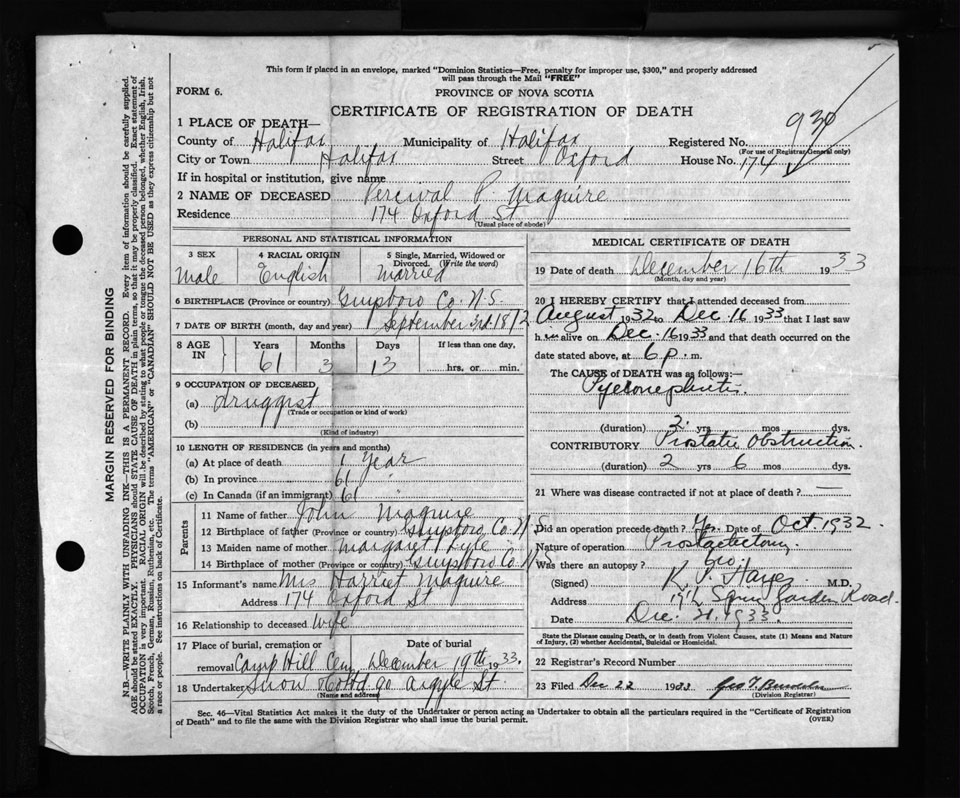 This form if placed in an envelope, marked "Dominion Statistics—Free, penalty for improper use, $300," and properly addressed
will pass through the Mail "FREE"
FORM 6.
PROVINCE OF NOVA SCOTIA
CERTIFICATE OF REGISTRATION OF DEATH
1 PLACE OF DEATH—
County of Halifax Municipality of Halifax Registered No. 930
(For use of Registrar General only)
City or Town Halifax Street Oxford House No. 174
If in hospital or institution, give name
2 NAME OF DECEASED Percival P. Maguire
Residence 174 Oxford St
(Usual place of abode)
PERSONAL AND STATISTICAL INFORMATION
3 SEX 4 RACIAL ORIGIN 5 Single, Married, Widowed or
Divorced. (Write the word)
Male English Married
6 BIRTHPLACE (Province or country) Guysboro Co. N.S.
7 DATE OF BIRTH (month, day and year) September 3rd 1872
8 AGE IN Years Months Days If less than one day,
61 3 13 hrs. or min.
9 OCCUPATION OF DECEASED
(a) Druggist
(Trade or occupation or kind of work)
(b)
(Kind of industry)
10 LENGTH OF RESIDENCE (in years and months)
(a) At place of death 1 Year
(b) In province 61 "
(c) In Canada (if an immigrant) 61 "
Parents
11 Name of father John Maguire
12 Birthplace of father (Province or country) Guysboro Co. N.S
13 Maiden name of mother Margaret Lyle
14 Birthplace of mother (Province or country) Guysboro Co. N.S
15 Informant's name Mrs Harriet Maguire
Address 174 Oxford St
16 Relationship to deceased Wife
17 Place of burial, cremation or Date of burial
removal Camp Hill Cem. December 19th 1933.
18 Undertaker Snow & Co Ltd 90 Argyle St.
(Name and address)
MEDICAL CERTIFICATE OF DEATH
19 Date of death December 16th 1933
(Month, day and year)
20 I HEREBY CERTIFY that I attended deceased from
August 1932 to Dec. 16 1933 that I last saw
him alive on Dec. 16 1933 and that death occurred on the
date stated above, at 6 p. m.
The CAUSE of DEATH was as follows:—
Pyelonephritis.
(duration) 2 yrs mos dys.
CONTRIBUTORY Prostatic Obstruction.
(duration) 2 yrs 6 mos dys.
21 Where was disease contracted if not at place of death?
Did an operation precede death? Yes. Date of Oct. 1932.
Nature of operation Prostatectomy.
Was there an autopsy? no
(Signed) Hayes M.D.
Address Spring Garden Road.
Date Dec. 21. 1933.
State the Disease causing Death, or in death from Violent Causes, state (1) Means and Nature
of Injury, (2) whether Accidental, Suicidal or Homicidal.
22 Registrar's Record Number
23 Filed Dec 22 1933 Geo T.
(Division Registrar)
Sec. 46—Vital Statistics Act makes it the duty of the Undertaker or person acting as Undertaker to obtain all the particulars required in the "Certificate of Registration
of Death" and to file the same with the Division Registrar who shall issue the burial permit.
(OVER)
MARGIN RESERVED FOR BINDING
N.B.—WRITE PLAINLY WITH UNFADING INK—THIS IS A PERMANENT RECORD. Every item of information should be carefully supplied.
AGE should be stated EXACTLY. PHYSICIANS should STATE CAUSE OF DEATH in plain terms, so that it may be properly classified. Exact statement of
OCCUPATION is very important. RACIAL ORIGIN will be described by stating to what people or tongue the deceased person belonged, whether English, Irish,
Scotch, French, German, Russian, Ruthenian, etc. The terms "AMERICAN" or "CANADIAN" SHOULD NOT BE USED as they express citizenship but not
a race or people. See instructions on back of Certificate.